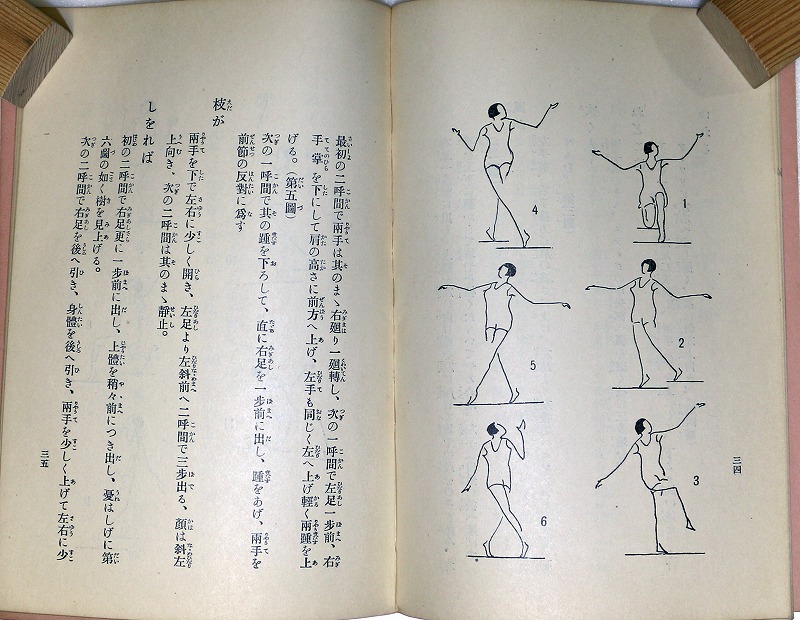 三四
1
2
3
4
5
6
最初の二呼間で兩手は其のまゝ右廻り一廻轉し、次の一呼間で左足一步前、右
手掌を下にして肩の高さに前方へ上げ、左手も同じく左へ上げ輕く兩踵を上
げる。(第五圖)
次の一呼間で其の踵を下ろして、直に右足を一步前に出し、踵をあげ、兩手を
前節の反對に爲す
枝が
兩手を下で左右に少しく開き、左足より左斜前へ二呼間で三步出る、顏は斜左
上向き、次の二呼間は其のまゝ靜止。
しをれば
初の二呼間で右足更に一步前に出し、上體を稍々前につき出し、憂はしげに第
六圖の如く樹を見上げる。
次の二呼間で右足を後へ引き、身體を後へ引き、兩手を少しく上げて左右に少
三五